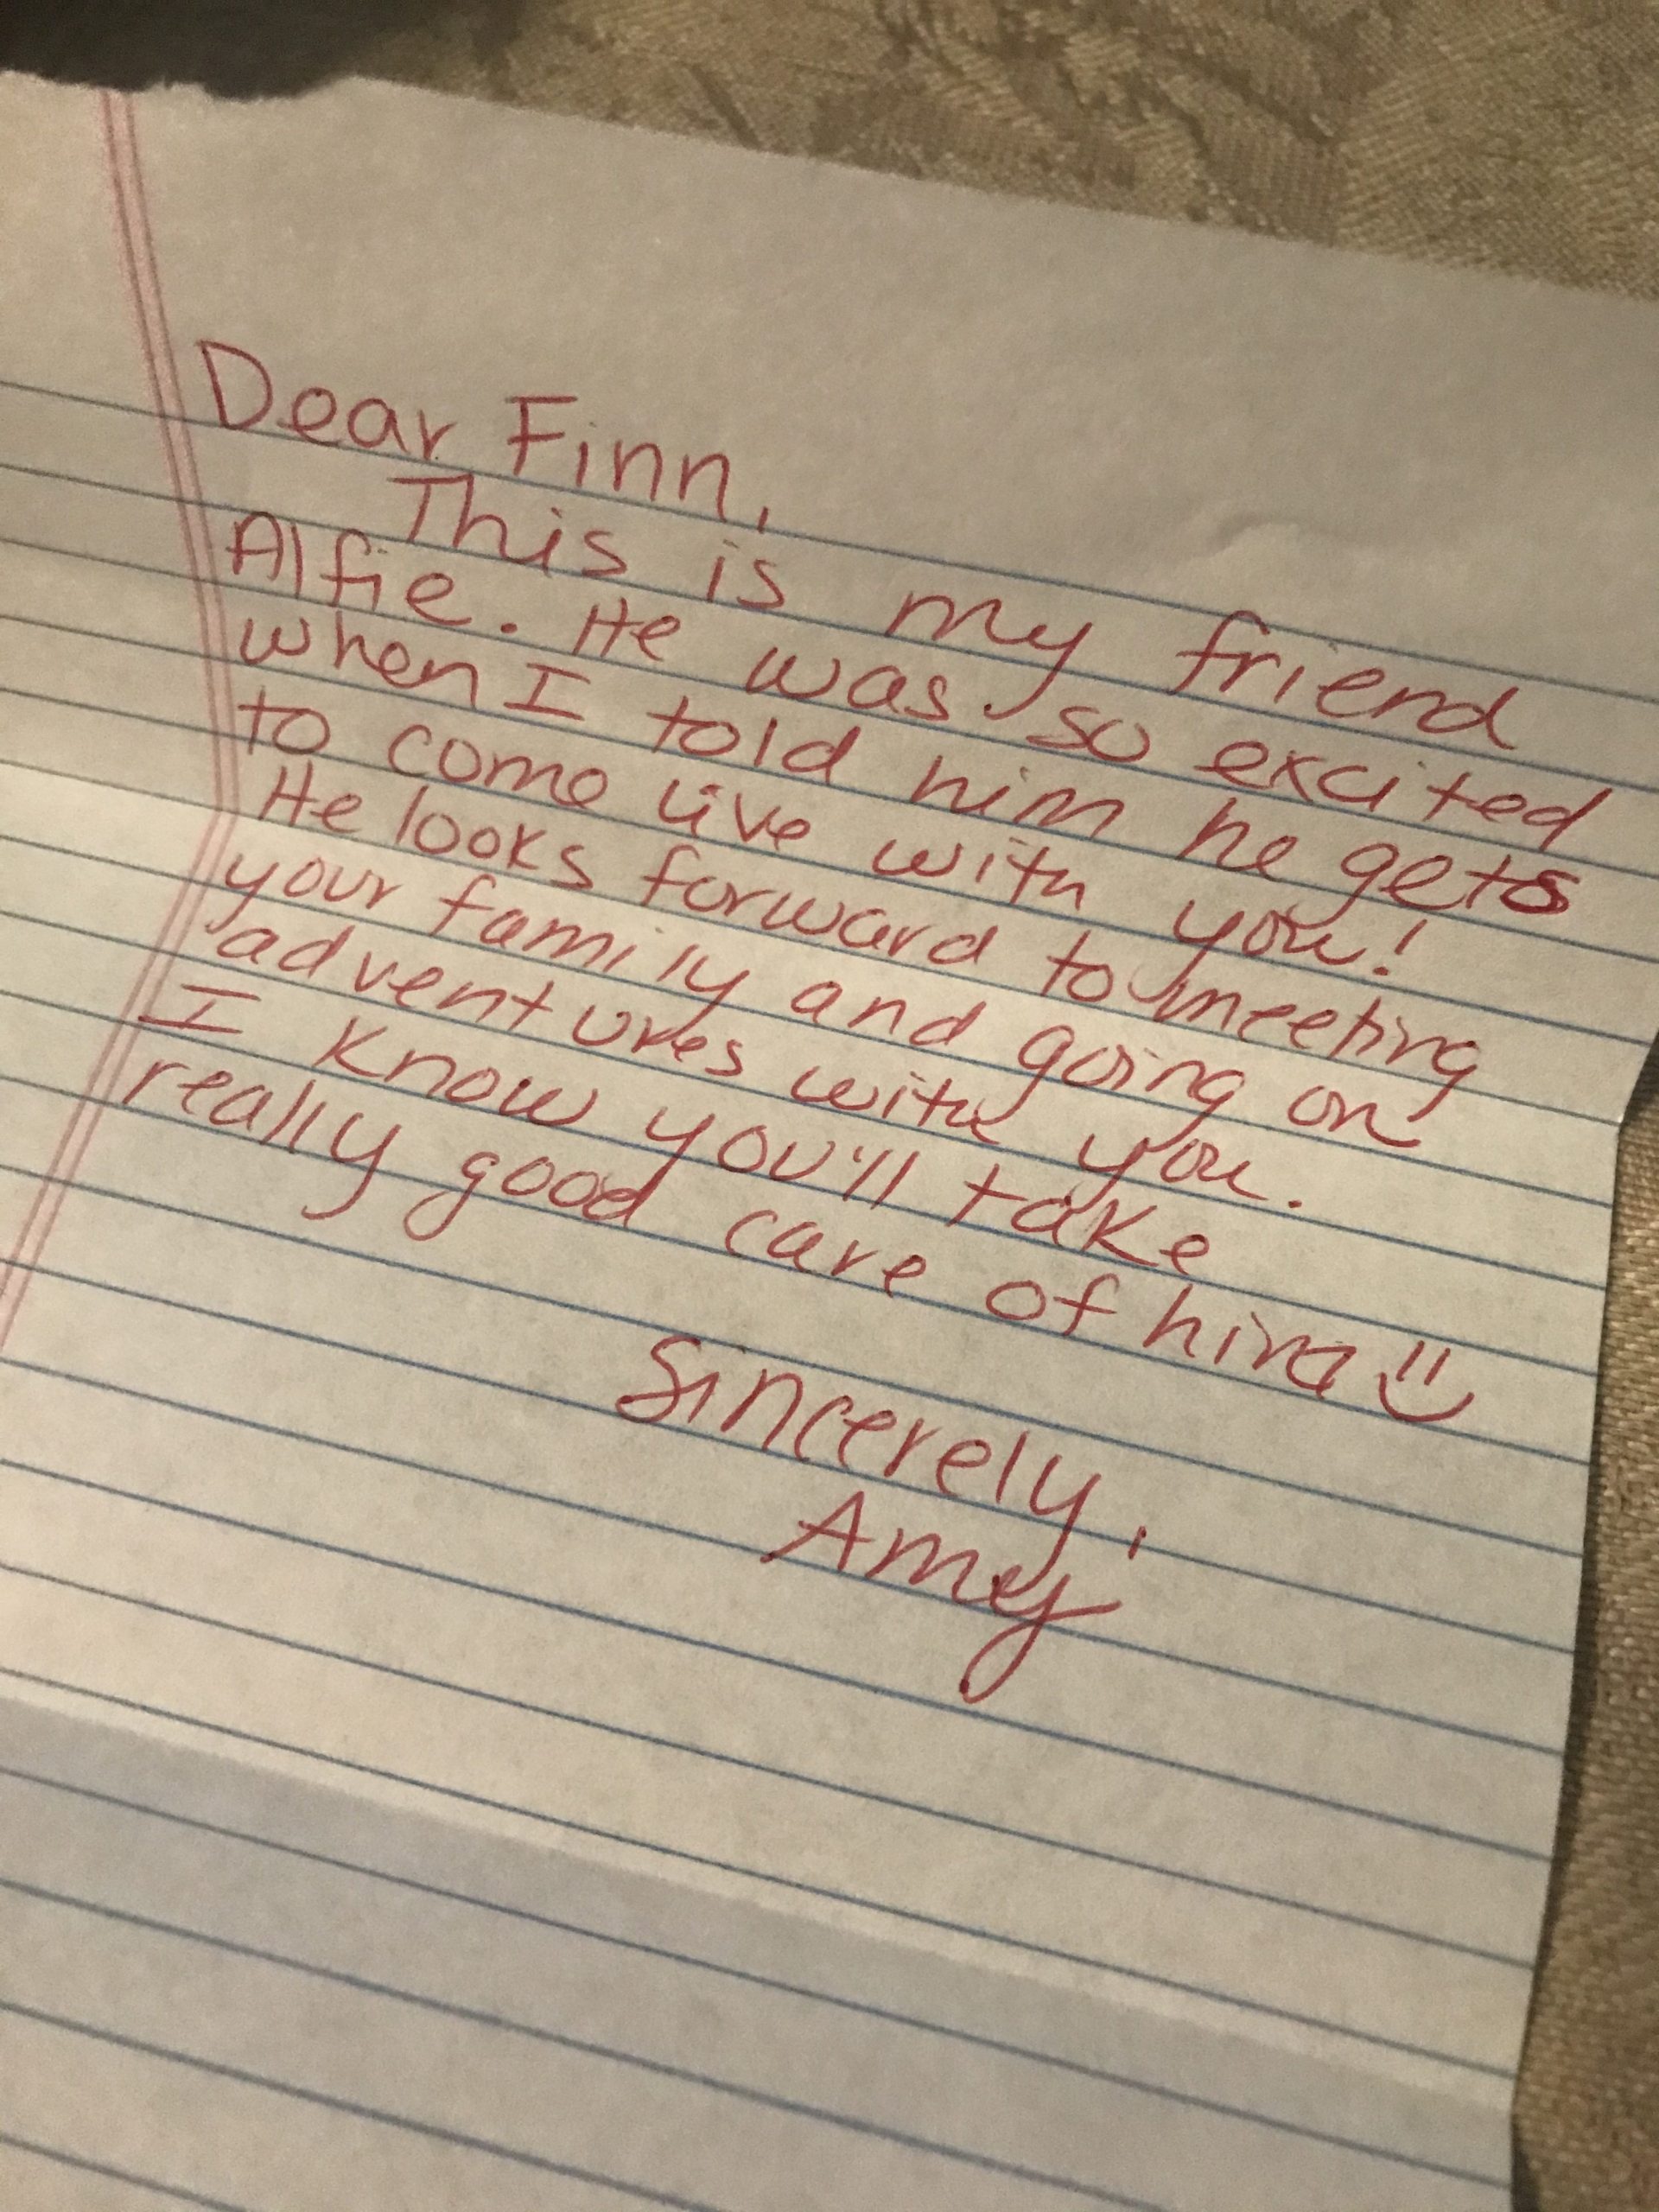 Dear Finn,
This is my friend
Alfie. He was so excited
when I told him he gets
to come live with you!
He looks forward to meeting
your family and going on
adventures with you.
I know you'll take
really good care of him
Sincerely,
Amy